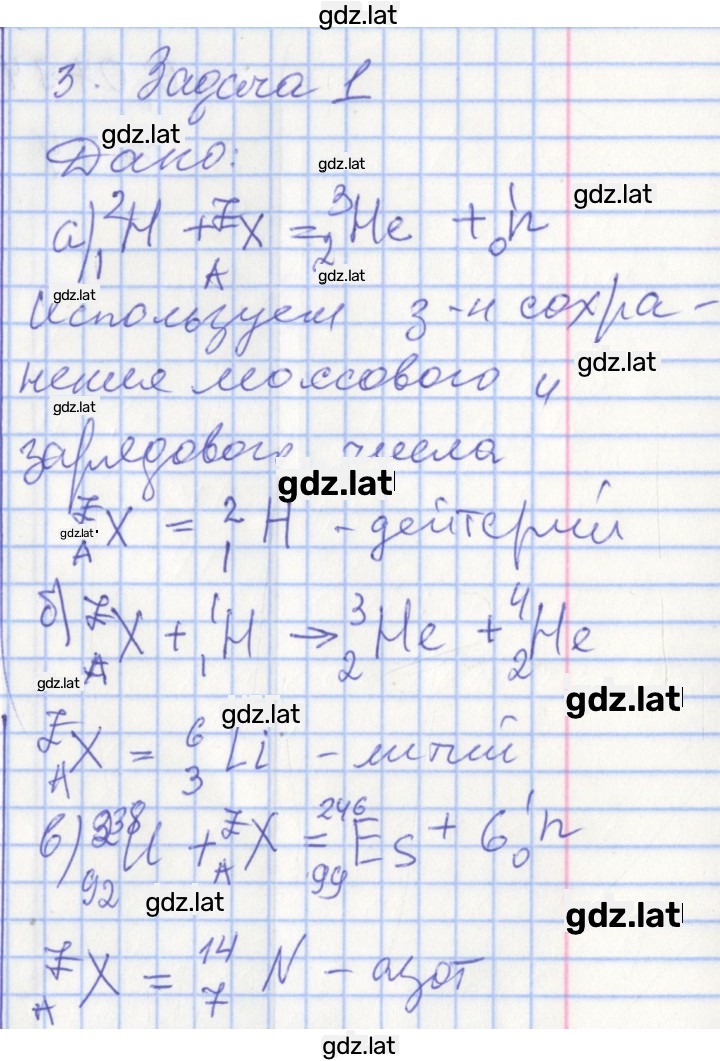 gdz.lat
3. Задача 1
gdz.lat
Дано:
gdz.lat
gdz.lat
а) ²₁H + ᶻ_A X = ³₂He + ¹₀n
gdz.lat
gdz.lat
Используем з-н сохра-
gdz.lat
нения массового и
gdz.lat
зарядового числа
gdz.lat
ᶻ_A X = ²₁H - дейтерий
gdz.lat
б) ᶻ_A X + ¹₁H → ³₂He + ⁴₂He
gdz.lat
gdz.lat
gdz.lat
ᶻ_A X = ⁶₃Li - литий
в) ²³⁸₉₂U + ᶻ_A X = ²⁴⁶₉₉Es + 6 ¹₀n
gdz.lat
gdz.lat
ᶻ_A X = ¹⁴₇N - азот
gdz.lat